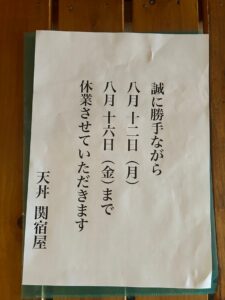 誠に勝手ながら
八月十二日（月）
八月十六日（金）まで
休業させていただきます
天丼 関宿屋